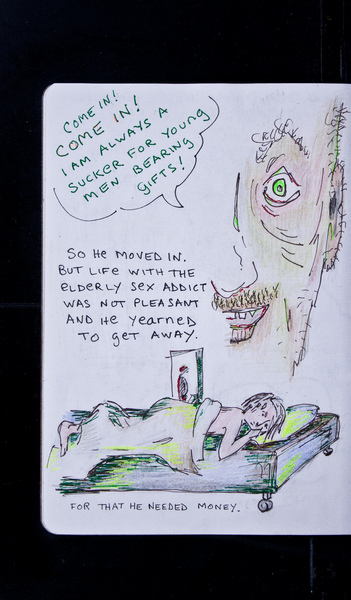 COME IN!
COME IN!
I AM ALWAYS A
SUCKER FOR YOUNG
MEN BEARING
GIFTS!
SO HE MOVED IN.
BUT LIFE WITH THE
ELDERLY SEX ADDICT
WAS NOT PLEASANT
AND HE YEARNED
TO GET AWAY.
FOR THAT HE NEEDED MONEY.